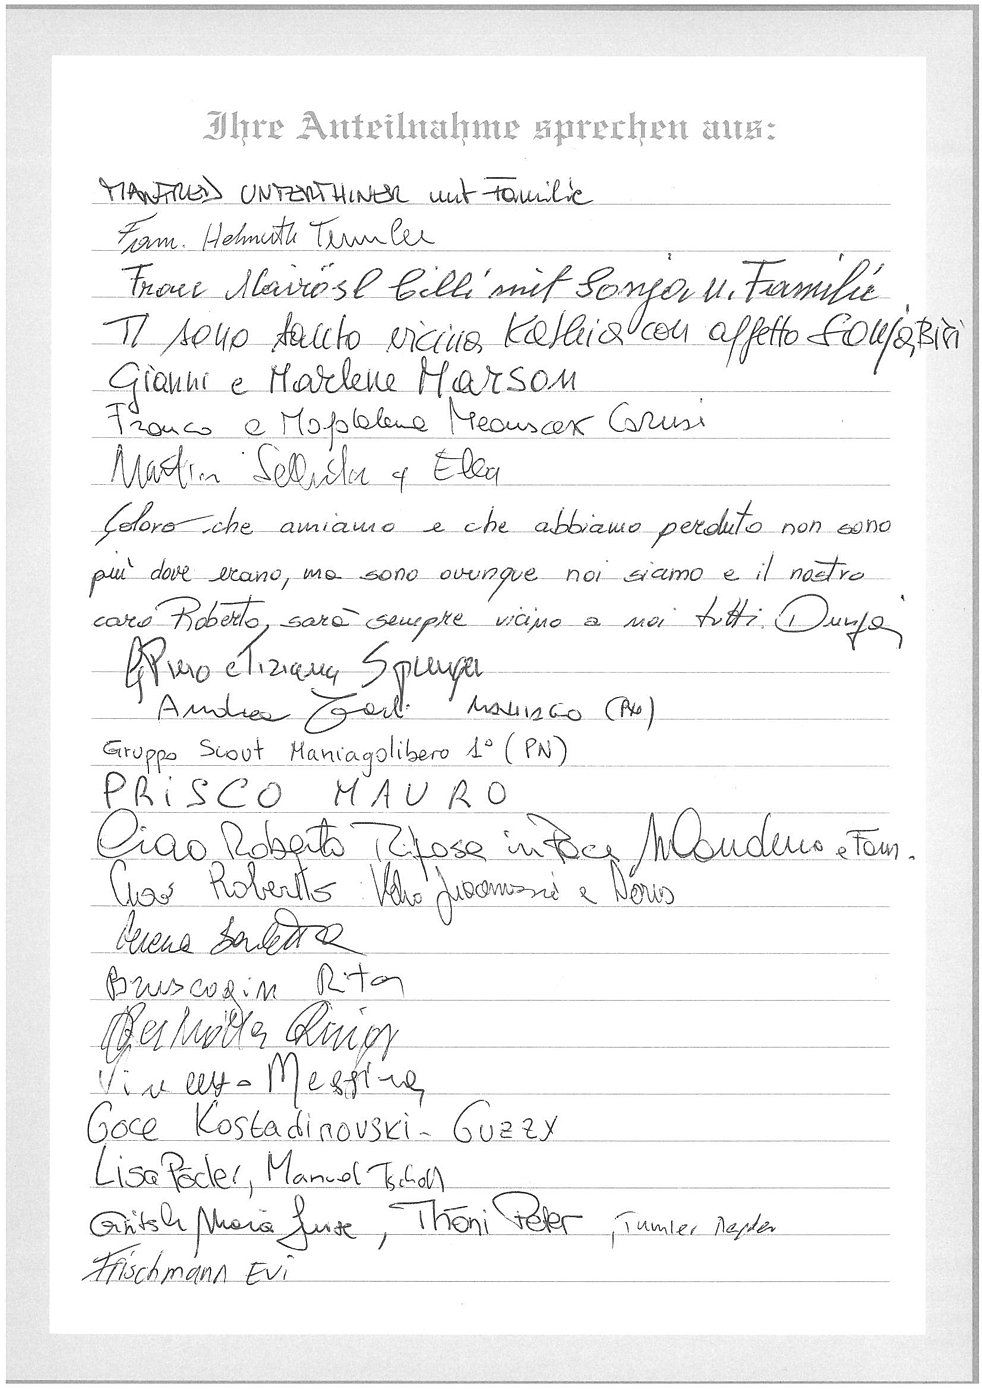 Ihre Anteilnahme sprechen aus:
MANFRED UNTERTHINER mit Familie
Fam. Helmuth Tumler
Frau Mairösl Cilli mit Sonja u. Familie
Ti sono tanto vicina Kathia con affetto Sonja Biri
Gianni e Marlene Marson
Franco e Magdalena Carusi
Martin & Elea
Coloro che amiamo e che abbiamo perduto non sono
più dove erano, ma sono ovunque noi siamo e il nostro
caro Roberto, sarà sempre vicino a noi tutti. Dunja
Pino e Tiziana
Andrea MANIAGO (PN)
Gruppo Scout Maniagolibero 1° (PN)
PRiSCO MAURO
Ciao Roberto Riposa in Pace e Fam.
Ciao Roberto e Doris
Verena
Bruscagin Rita

Vincenzo Messina
Goce Kostadinovski - GUZZY
Lisa Pöder, Manuel Tscholl
Maria Luise, Thöni Peter, Tumler
Frischmann Evi